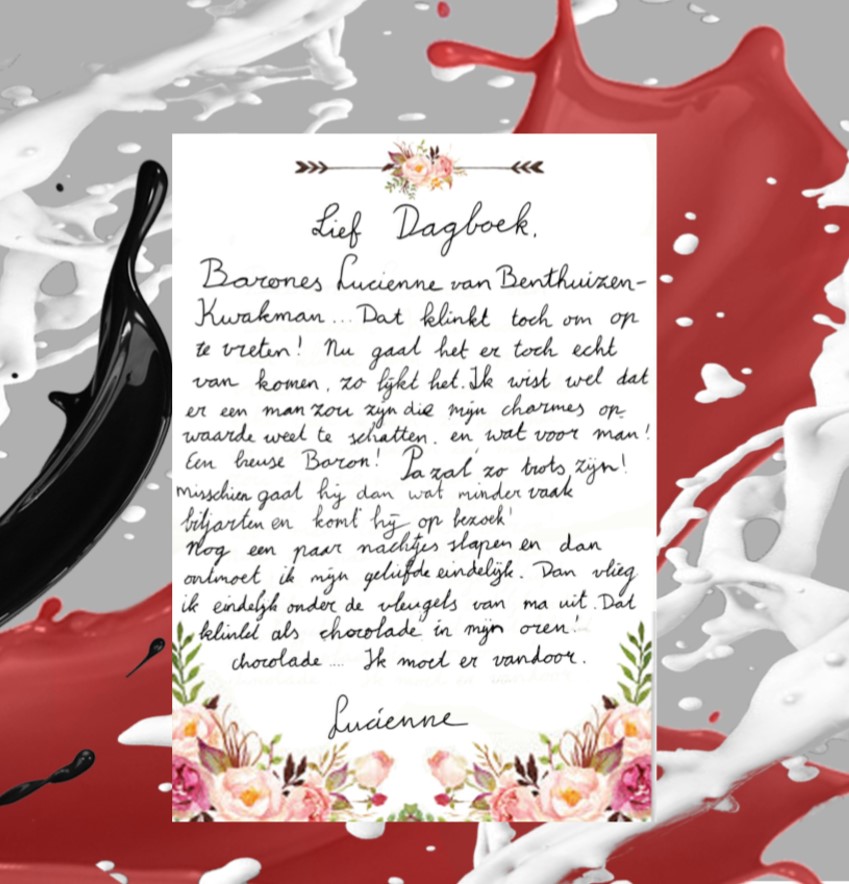 Lief Dagboek,
Barones Lucienne van Benthuizen-
Kwakman... Dat klinkt toch om op
te vreten! Nu gaat het er toch echt
van komen, zo lijkt het. Ik wist wel dat
er een man zou zijn die mijn charmes op
waarde weet te schatten, en wat voor man!
Een heuse Baron! Pa zal zo trots zijn!
Misschien gaat hij dan wat minder vaak
biljarten en komt hij op bezoek!
Nog een paar nachtjes slapen en dan
ontmoet ik mijn geliefde eindelijk. Dan vlieg
ik eindelijk onder de vleugels van ma uit. Dat
klinkt als chocolade in mijn oren!
chocolade .... Ik moet er vandoor.
Lucienne